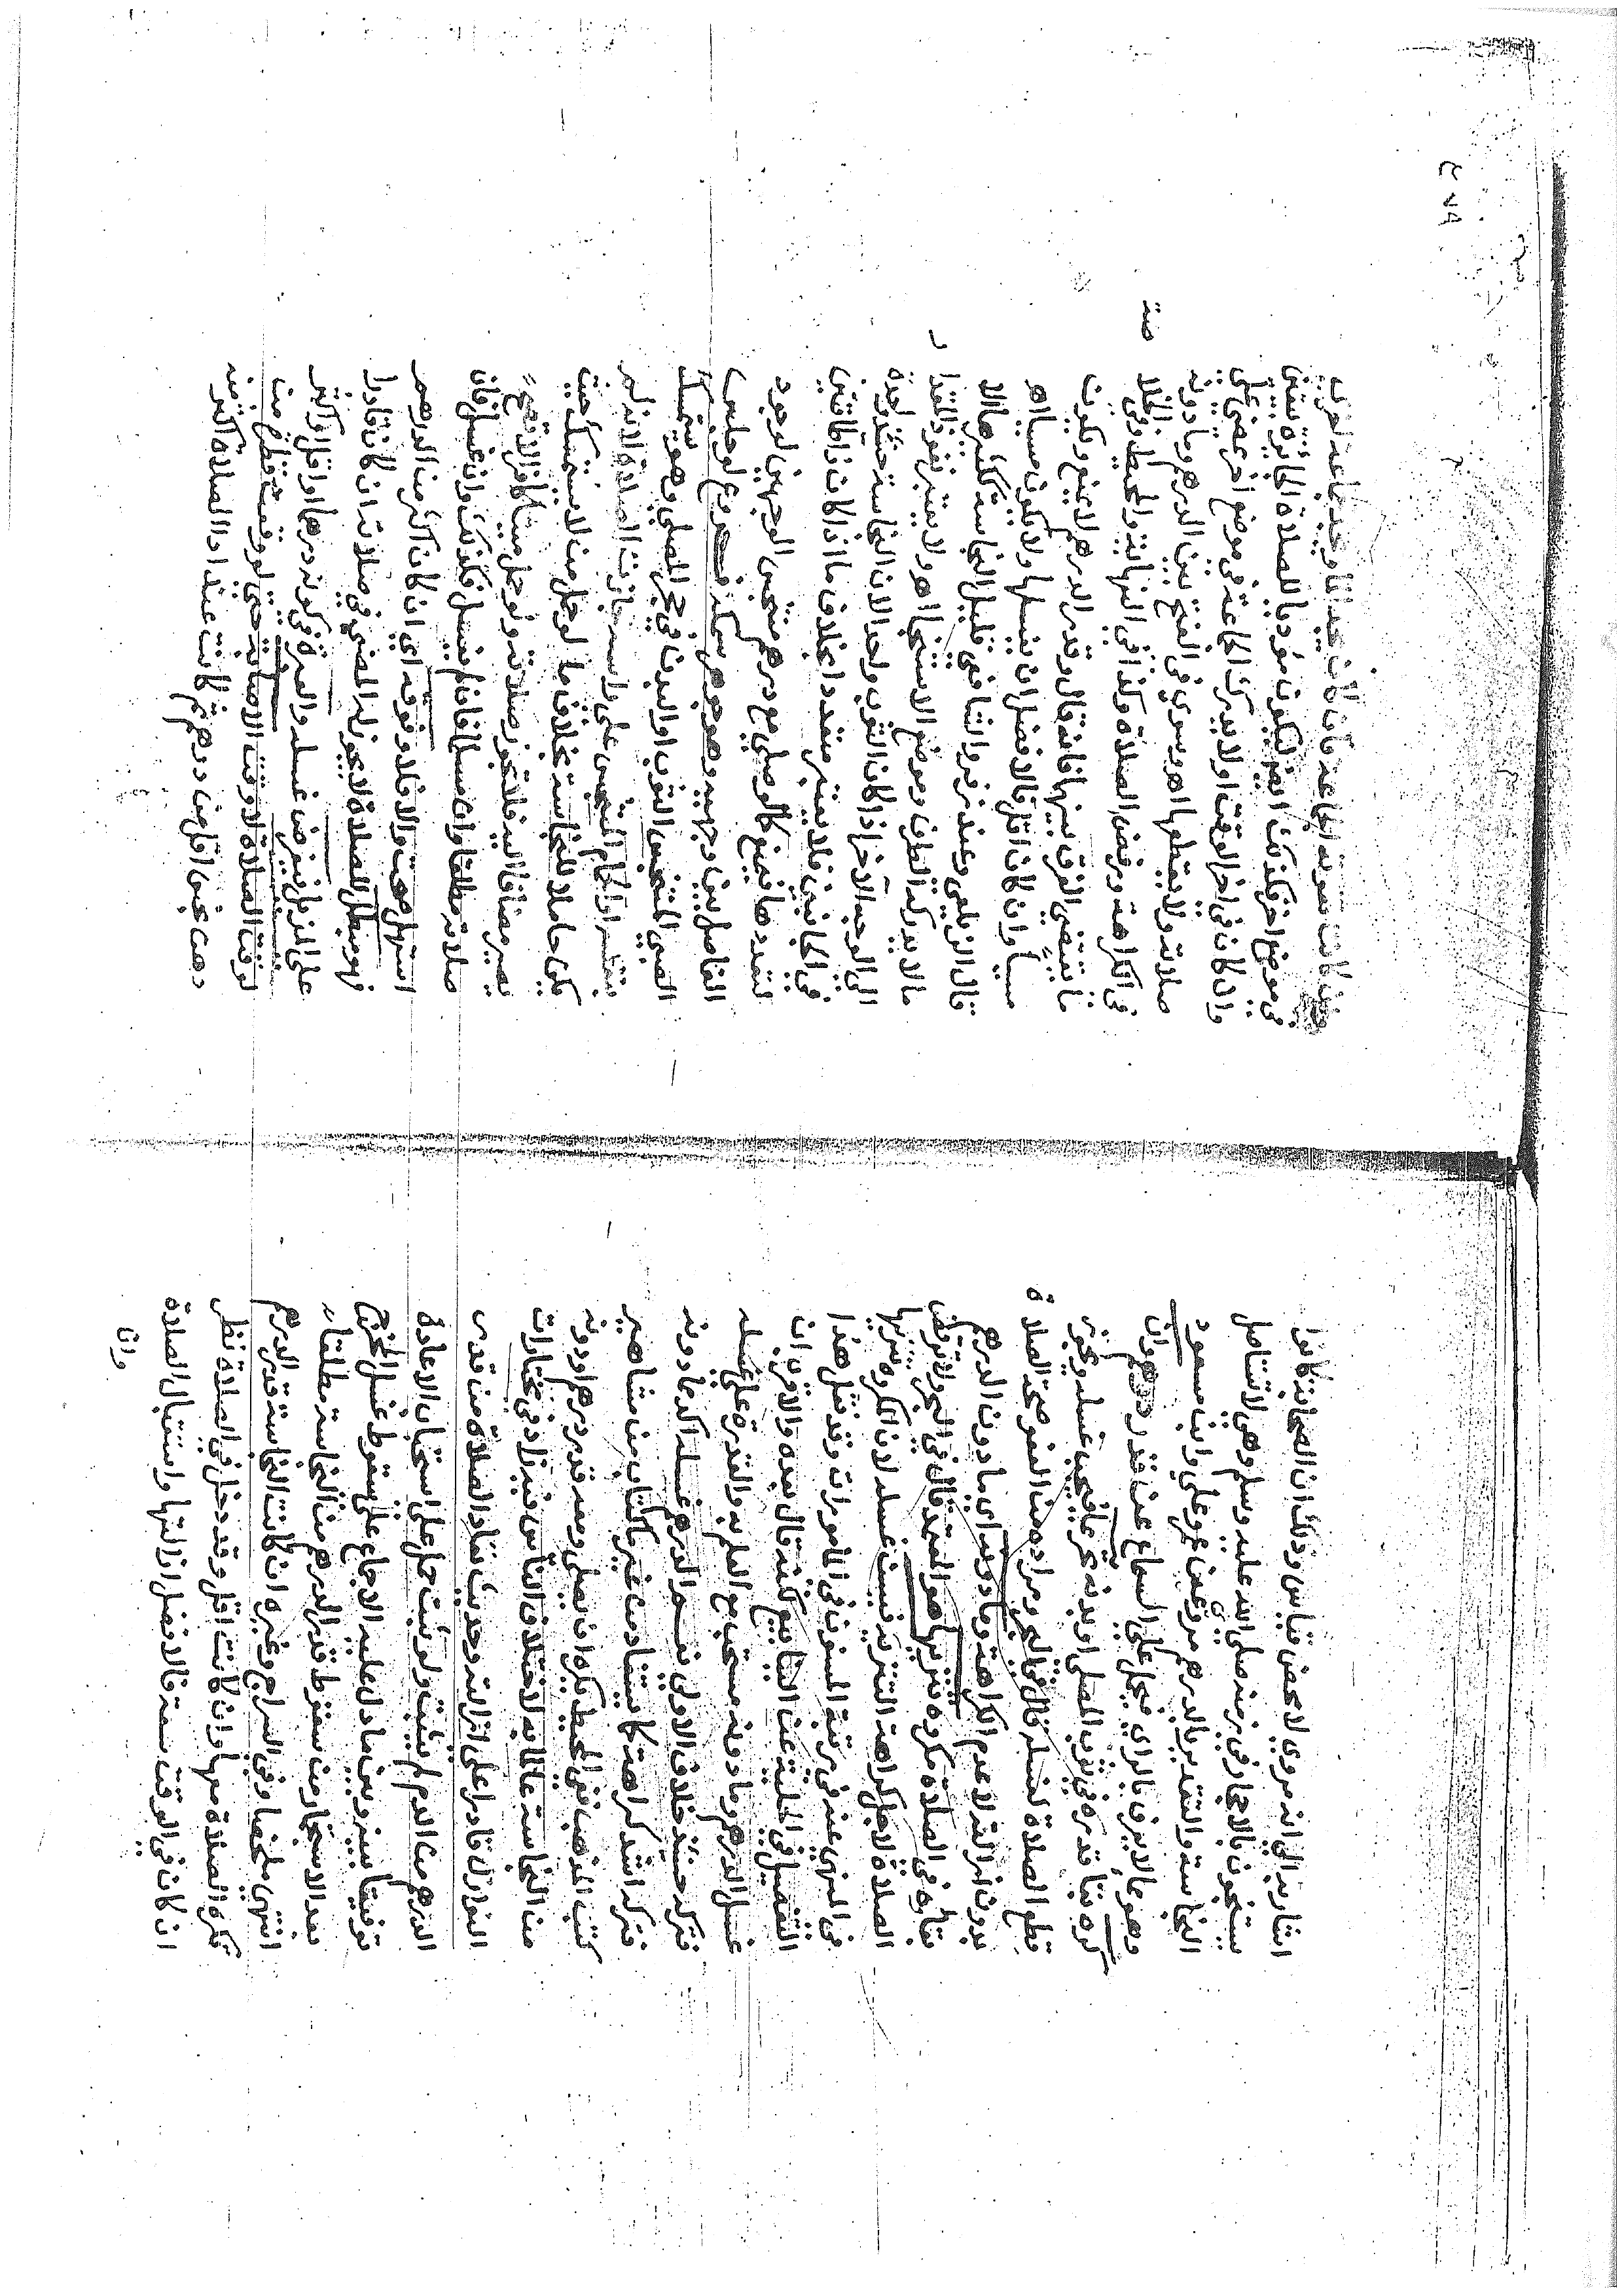 اشار به الى انه مروي لا محض قياس وذلك ان الصحابة كانوا
يستنجون بالاحجار في زمنه صلى الله عليه وسلم وهي لا تستاصل
النجاسة والتقدير بالدرهم مروي عن عمر وعلي وابن مسعود
وهو مما لا يعرف بالراي فيحمل على السماع عن قدر درهم وان
كره بقا قدره في ثوب المصلي او بدنه تحريما فيجب غسله ويجوز
قطع الصلاة لغسله قال في البحر ومراده من العفو صحة الصلاة
بدون ازالته لا عدم الكراهة وما دونه اي ما دون الدرهم
بقاؤه في الصلاة مكروه تنزيها هو المعتمد قال في البحر ولا ترفض
الصلاة لاجل كراهة التنزيه فيسن غسله لان المكروه تنزيها
في المنهي عنه في رتبة المسنون في المامورات وقد نقل هذا
التفصيل في الحلية عن الينابيع لكنه قال بعده والاقرب ان
غسل الدرهم وما دونه مستحب مع العلم به والقدرة على غسله
فتركه حينئذ خلاف الاولى نعم الدرهم غسله اكد مما دونه
فتركه اشد كراهة كما يستفاد من غير ما كتاب من مشاهير
كتب المذهب ففي المحيط يكره ان يصلي ومعه قدر درهم او دونه
من النجاسة عالما به لاختلاف الناس فيه زاد في مختارات
النوازل قادرا على ازالته وحديث تعاد الصلاة من قدر
الدرهم من الدم لم يثبت ولو ثبت حمل على استحباب الاعادة
توفيقا بينه وبين ما دل عليه الاجماع على سقوط غسل المخرج
بعد الاستجمار من سقوط قدر الدرهم من النجاسة مطلقا اه
انتهى ملخصا وفي السراج وغيره ان كانت النجاسة قدر الدرهم
تكره الصلاة معها وان كانت اقل وقد دخل في الصلاة نظر
ان كان في الوقت سعة فالافضل ازالتها واستقبال الصلاة
وان
وان كانت تفوته الجماعة فان كان يجد الماء ويجد جماعة اخرين
في موضع اخر فكذلك ايضا ليكون مؤديا للصلاة الجائزة بيقين
وان كان في اخر الوقت او لا يدرك الجماعة في موضع اخر يمضي على
صلاته ولا يقطعها اه وسوى في الفتح بين الدرهم وما دونه
في الكراهة ورفض الصلاة وكذا في النهاية والمحيط وفي الخلاصة
ما يقتضي الفرق بينهما فانه قال وقدر الدرهم لا يمنع ويكون
مسيئا وان كان اقل فالافضل ان يغسلها ولا يكون مسيئا اه
قال الزيلعي وعند زفر والشافعي قليل النجاسة ككثيرها الا
ما لا يدركه الطرف وموضع الاستنجا اه ولا يعتبر نفوذ المقدار
الى الوجه الاخر اذا كان الثوب واحدا لان النجاسة حينئذ واحدة
في الجانبين فلا يعتبر متعددا بخلاف ما اذا كان ذا طاقين
لتعددها فيمنع كما لو صلى مع درهم متنجس الوجهين لوجود
الفاصل بين وجهيه وهو جوهر سمكه لو جلس
الصبي المتنجس الثوب او البدن في حجر المصلي وهو يستمسك
بنفسه او الحمام المتنجس على راسه جازت الصلاة لانه لم
يكن حاملا للنجاسة بخلاف ما لو حمل من لا يستمسك حيث
يصير مضافا اليه فلا تجوز صلاته ولو حمل ميتا كافرا لا تصح
صلاته مطلقا وان مسلما فان لم يغسل فكذلك وان غسل فان
استهل صحت والا فلا وفوقه اي ان كان اكثر من الدرهم
فهو مبطل للصلاة لا يجوز له المضي في صلاته ان كان قادرا
على المزيل فيفرض غسله والعبرة في كونه درهما او اقل او اكثر
لوقت الصلاة لا وقت الاصابة حتى لو وقعت قطعة من
دهن نجس اقل من درهم ثم كانت عند اداء الصلاة اكثر منه